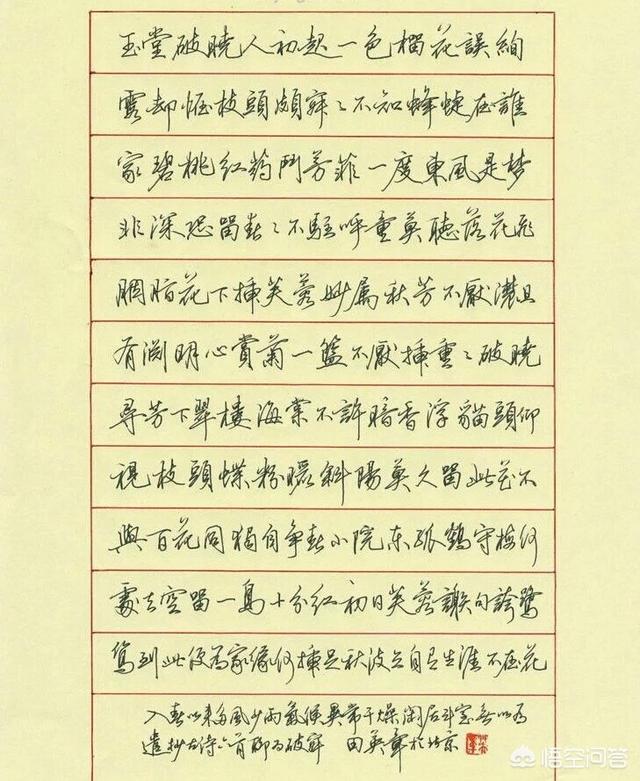 玉堂破曉人初起一色榴花誤絢
霞却恠枝頭頗寂々不知蜂蝶在誰
家碧桃紅药鬥芳菲一度東風是梦
非深恐留春々不駐呼童莫聽落花飛
胭脂花下插芙蓉妙属秋芳不厭濃且
有渊明心賞菊一籃不厭插重々破曉
尋芳下翠楼海棠不許暗香浮貓頭仰
視枝頭蝶粉曬斜陽莫久留此花不
與百花同獨自争春小院东孤鶴守梅何
處去空留一島十分紅初日芙蓉謝句誇鷺
鴛到此便為家緣何插足秋波上自有生涯不在花
入春以来多風少雨氣候異常干燥闲居斗室無以为
遣抄古诗六首聊为破寂 田英章於北京
悟空问答